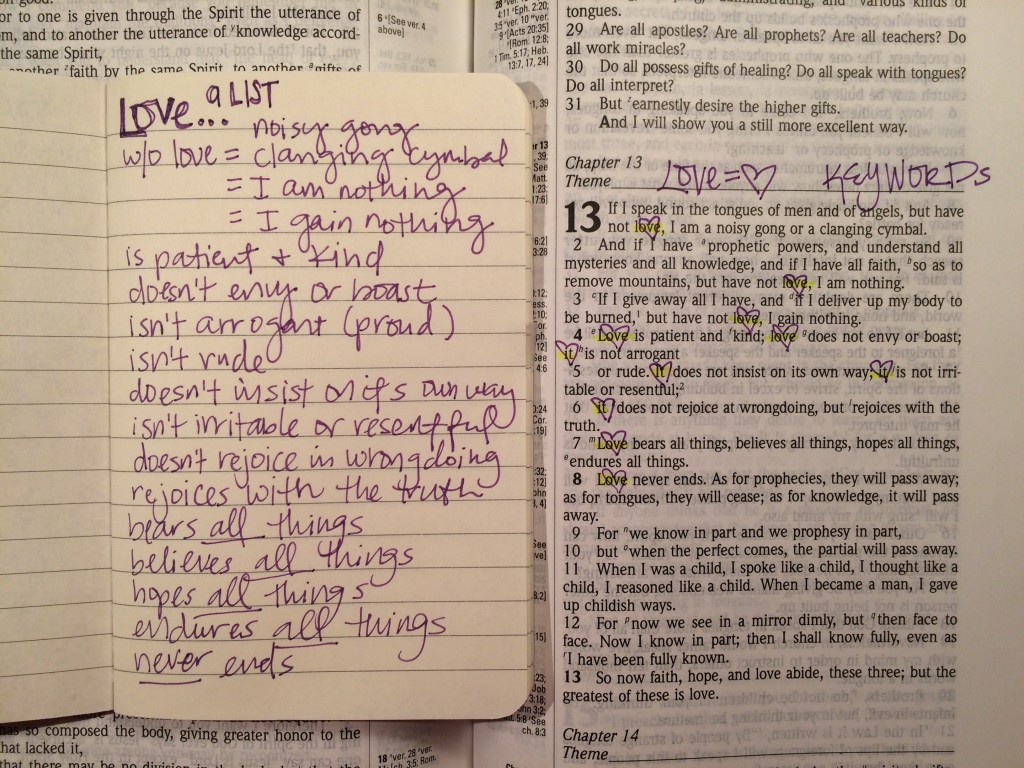 or to one is given through the Spirit the utterance of
m, and to another the utterance of ʸknowledge accord-
the same Spirit,
another ᶻfaith by the same Spirit, to another ᵃgifts of
6 ⁶[See ver. 4
above]
4:11 ᵃEph. 2:20;
9 ʸ[Acts 20:35]
1 Tim. 5:17; Heb.
13:7, 17, 24]
LOVE... a LIST
noisy gong
w/o love = clanging cymbal
= I am nothing
= I gain nothing
is patient + kind
doesn't envy or boast
isn't arrogant (proud)
isn't rude
doesn't insist on its own way
isn't irritable or resentful
doesn't rejoice in wrongdoing
rejoices with the truth
bears all things
believes all things
hopes all things
endures all things
never ends
as so composed the body, giving greater honor to the
that lacked it,
that there may be no division in
18 ᵘver. 28 ᵛver.
tongues.
29 Are all apostles? Are all prophets? Are all teachers? Do
all work miracles?
30 Do all possess gifts of healing? Do all speak with tongues?
Do all interpret?
31 But ᶻearnestly desire the higher gifts.
And I will show you a still more excellent way.
Chapter 13
Theme LOVE=♡ KEYWORDS
13 If I speak in the tongues of men and of angels, but have
not love, I am a noisy gong or a clanging cymbal.
2 And if I have ᵃprophetic powers, and understand all
mysteries and all knowledge, and if I have all faith, ᵇso as to
remove mountains, but have not love, I am nothing.
3 ᶜIf I give away all I have, and ᵈif I deliver up my body to
be burned,¹ but have not love, I gain nothing.
4 ᵉLove is patient and ᶠkind; love ᵍdoes not envy or boast;
it ʰis not arrogant
5 or rude. It does not insist on its own way; it is not irri-
table or resentful;²
6 it does not rejoice at wrongdoing, but ˡrejoices with the
truth.
7 ᵐLove bears all things, believes all things, hopes all things,
ᵉendures all things.
8 Love never ends. As for prophecies, they will pass away;
as for tongues, they will cease; as for knowledge, it will pass
away.
9 For ⁿwe know in part and we prophesy in part,
10 but ᵒwhen the perfect comes, the partial will pass away.
11 When I was a child, I spoke like a child, I thought like a
child, I reasoned like a child. When I became a man, I gave
up childish ways.
12 For ᵖnow we see in a mirror dimly, but ᑫthen face to
face. Now I know in part; then I shall know fully, even as
ʳI have been fully known.
13 So now faith, hope, and love abide, these three; but the
greatest of these is love.
Chapter 14
Theme